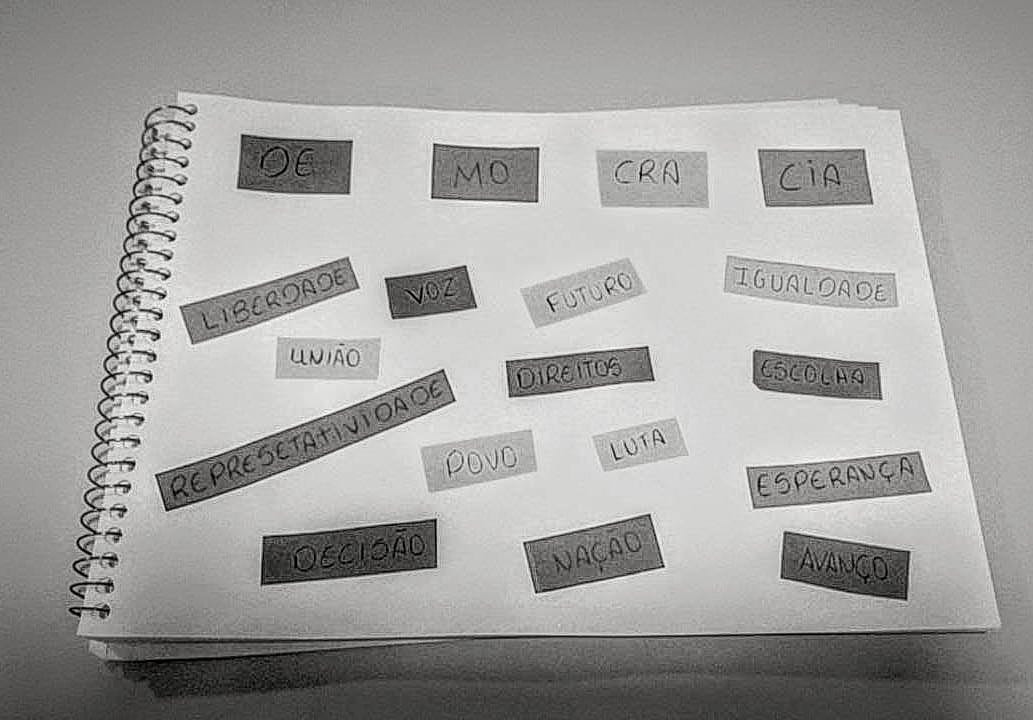 DE MO CRA CIA
LIBERDADE VOZ FUTURO IGUALDADE
UNIÃO DIREITOS ESCOLHA
REPRESETATIVIDADE POVO LUTA ESPERANÇA
DECISÃO NAÇÃO AVANÇO